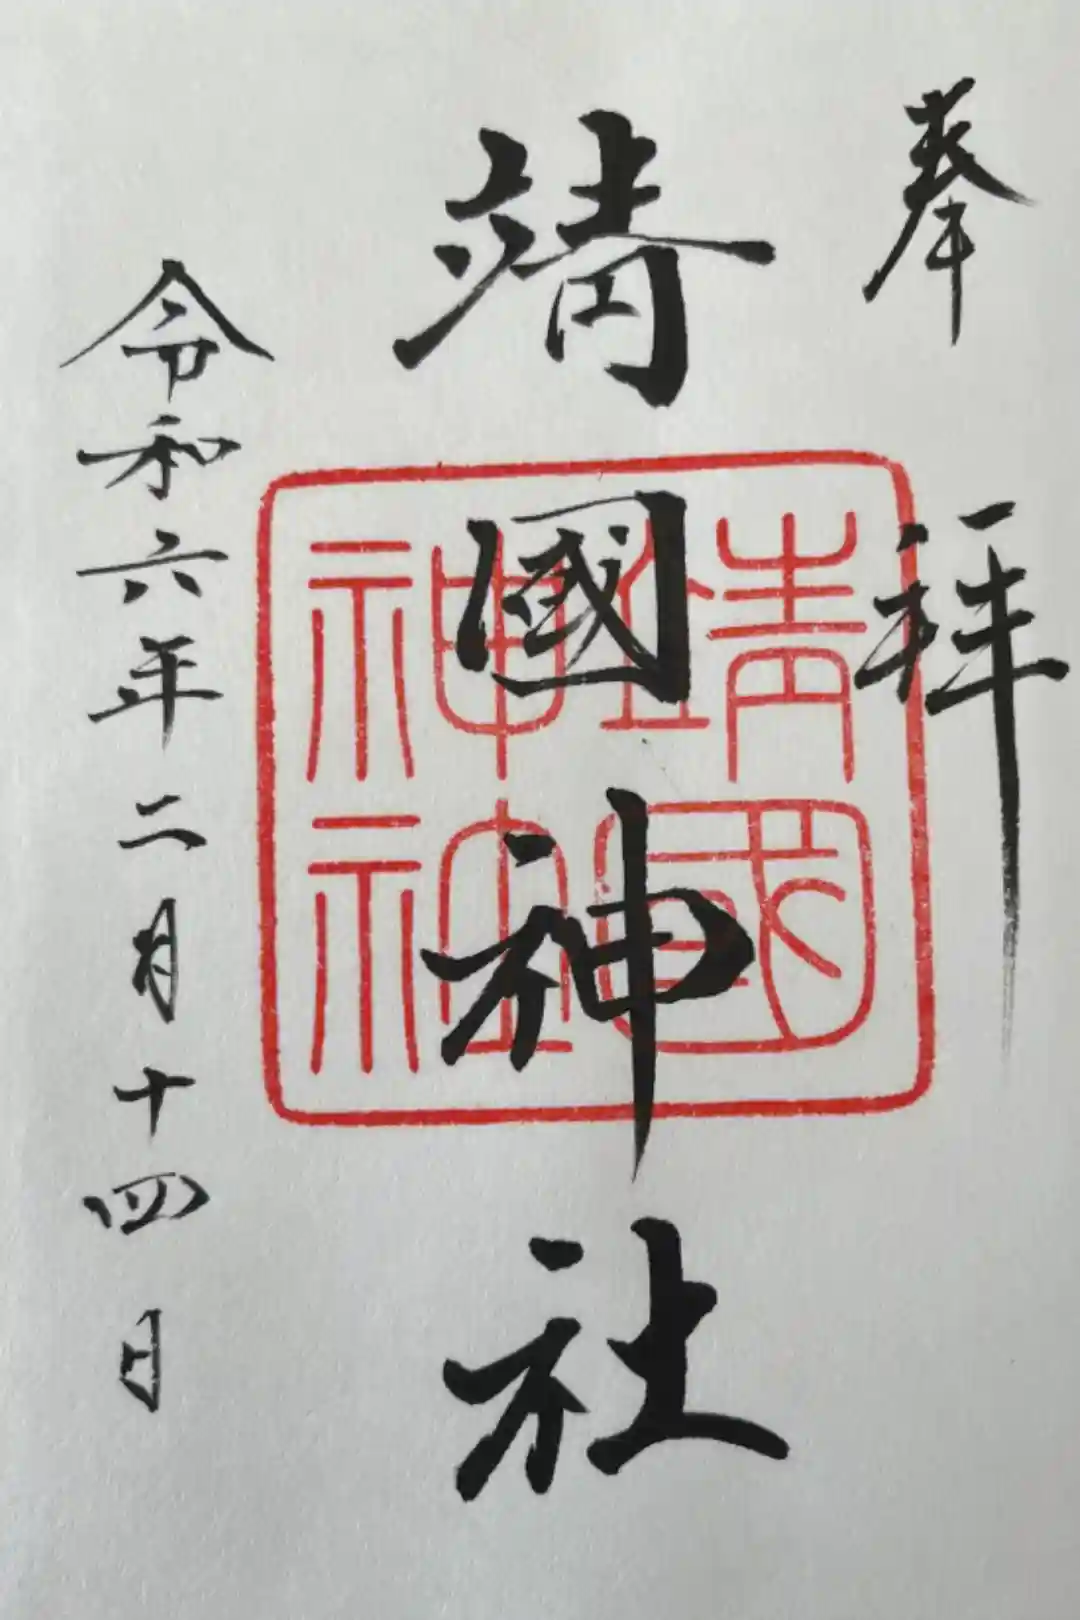 奉拝
靖國神社
靖國
神社
令和六年二月十四日